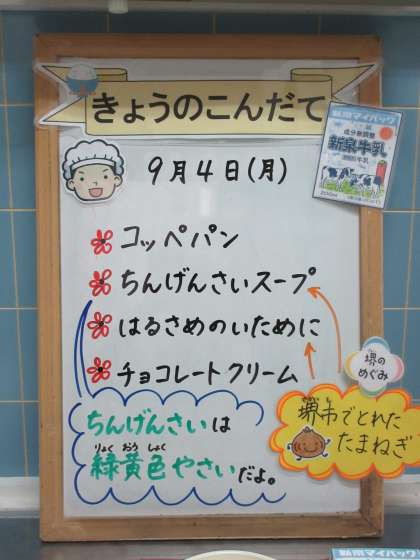 きょうのこんだて
9月4日(月)
新泉マイパック
成分無調整
新泉牛乳
コッペパン
ちんげんさいスープ
はるさめのいために
チョコレートクリーム
堺の
めぐみ
ちんげんさいは
りょく おう しょく
緑黄色やさいだよ。
堺市でとれた
たまねぎ